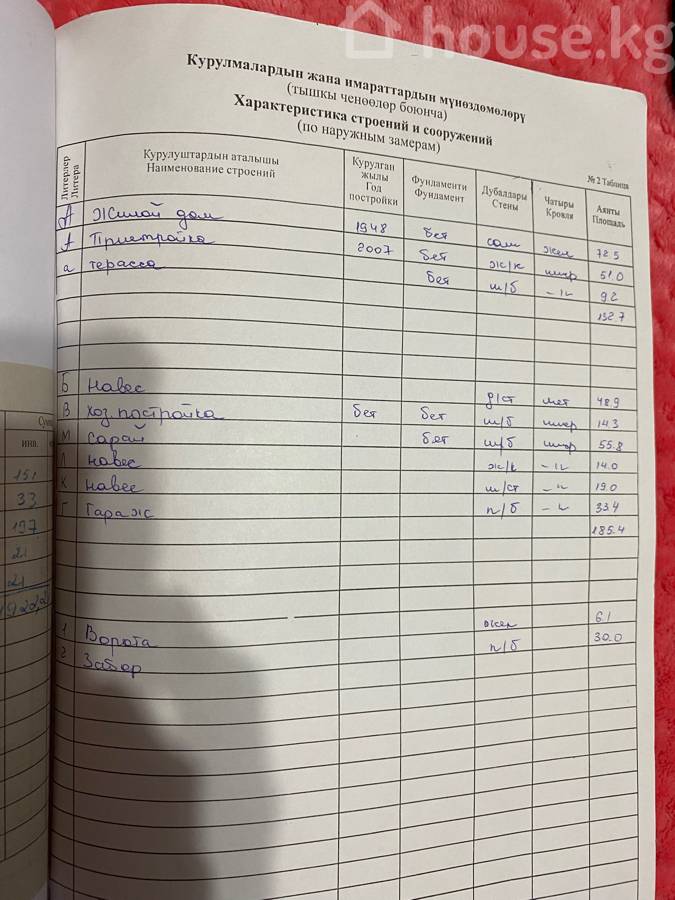 house.kg
Курулмалардын жана имараттардын мүнөздөмөлөрү
(тышкы ченөөлөр боюнча)
Характеристика строений и сооружений
(по наружным замерам)
№ 2 Таблица
Литерлер Литера | Курулуштардын аталышы Наименование строений | Курулган жылы Год постройки | Фундаменти Фундамент | Дубалдары Стены | Чатыры Кровля | Аянты Площадь
А Жилой дом 1948 бет сам жел 72.5
А Пристройка 2007 бет ж/к шифр 51.0
а терасса бет ш/б -"- 9.2
132.7
Б Навес д/ст мет 48.9
В Хоз. постройка бет бет ш/б шифр 14.3
М Сарай бет ш/б шифр 55.8
Л навес ж/к -"- 14.0
К навес ш/ст -"- 19.0
Г Гараж п/б -"- 33.4
185.4
1 Ворота жел 6.1
2 Забор п/б 30.0
Сум
инв.
151
33
197
21
21